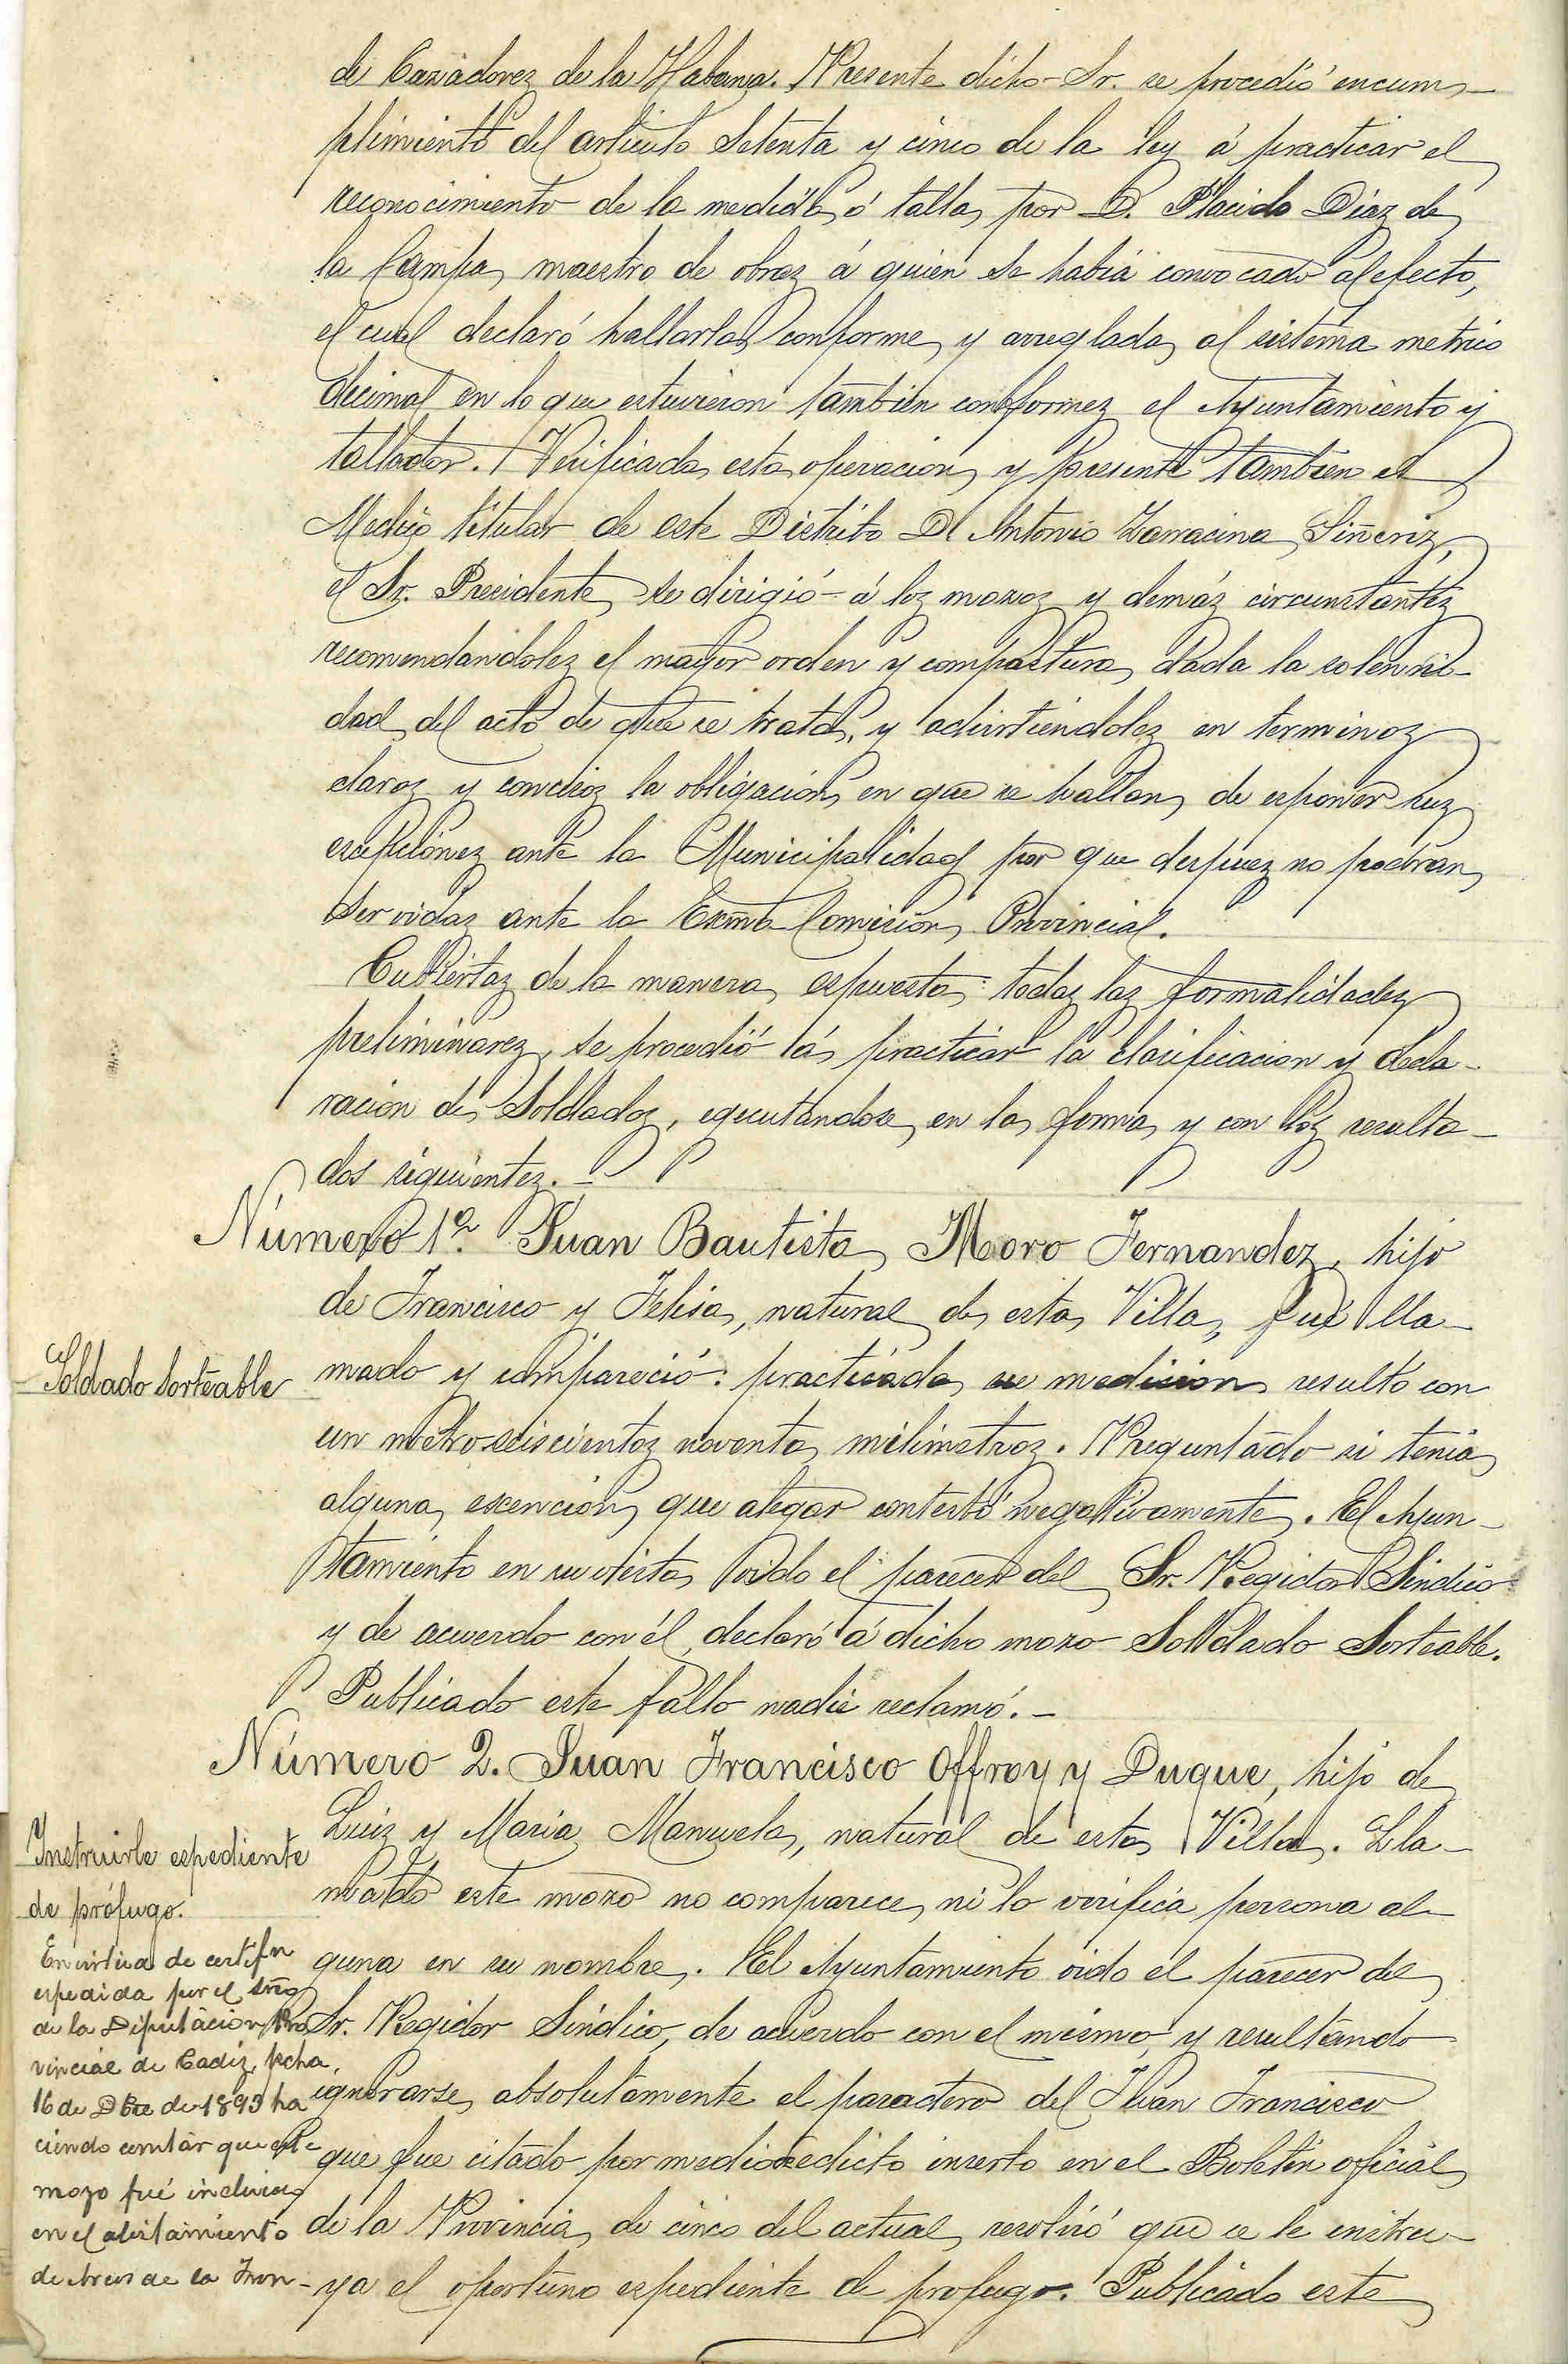 de Cazadorez de la Habana. Presente dicho Sr. se procedió encum-
plimiento del articulo Setenta y cinco de la ley á practicar el
reconocimiento de la medida ó talla por D. Placido Diaz de
la Campa maestro de obraz á quien se habia convocado al efecto,
el cual declaró hallarla conforme y arreglada al sistema metrico
decimal en lo que estuvieron tambien conformez el Ayuntamiento y
tallador. Verificada esta operacion y presente tambien el
Medico titular de este Distrito D. Antonio Zarracina Siñeriz,
el Sr. Presidente se dirigió á loz mozoz y demáz circunstantez
recomendandolez el mayor orden y compostura dada la solemni-
dad del acto de que se trata, y advirtiendolez en terminoz
claroz y concisoz la obligacion en que se hallan de esponer suz
escepcionez ante la Municipalidad por que despuez no podran
ser oidaz ante la Exma Comision Provincial.
Cubiertaz de la manera espuesta todaz laz formalidadez
preliminarez, se procedió á practicar la clasificacion y decla-
racion de Soldadoz, egecutandose en la forma y con loz resulta-
dos siguientez. -
Número 1º. Juan Bautista Moro Fernandez, hijo
de Francisco y Felisa, natural de esta Villa, fué lla-
Soldado Sorteable
mado y compareció: practicada su medicion resultó con
un metro seiscientoz noventa milimetroz. Preguntado si tenia
alguna escencion que alegar contestó negativamente. El Ayun-
tamiento en su vista oido el parecer del Sr. Regidor Sindico
y de acuerdo con él declaró á dicho mozo Soldado Sorteable.
Publicado este fallo nadie reclamó. -
Número 2. Juan Francisco Offroy y Duque, hijo de
Luiz y Maria Manuela, natural de esta Villa. Lla-
mado este mozo no comparece, ni lo verifica persona al-
guna en su nombre. El Ayuntamiento oido el parecer del
Sr. Regidor Síndico, de acuerdo con el mismo, y resultando
ignorarse absolutamente el paradero del Juan Francisco
que fue citado por medio de edicto inserto en el Boletin oficial
de la Provincia de cinco del actual, resolvió que se le instru-
ya el oportuno espediente de profugo. Publicado este
Instruirle espediente
de prófugo.
En virtud de certifn
espedida por el Srio
de la Diputacion Pro
vincial de Cadiz, fcha.
16 de Dbre de 1893 ha
ciendo constar que este
mozo fué incluido
en el alistamiento
de Arcos de la Fron-